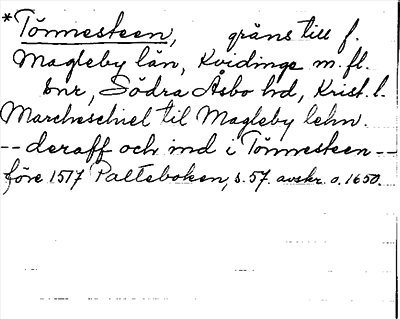 *Tönnesteen, gräns till f.
Magleby län, Kvidinge m.fl.
snr, Södra Åsbo hd, Krist. l.
Marcheschiel til Magleby lehn.
-- deraff och ind i Tönnesteen --
före 1517 Palteboken, s. 57. avskr. o. 1650.